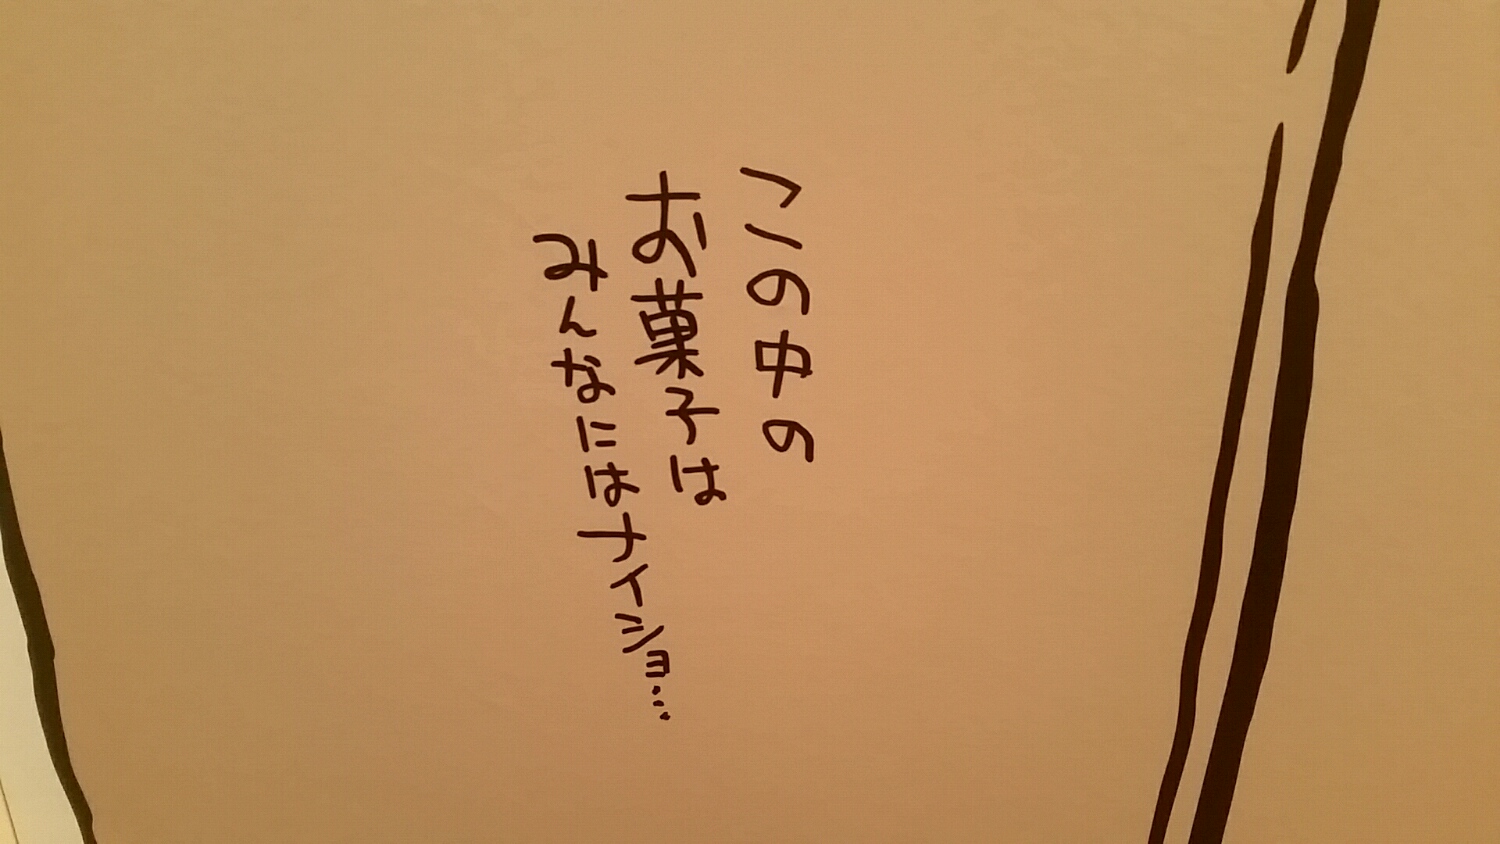 この中の
お菓子は
みんなにはナイショ…